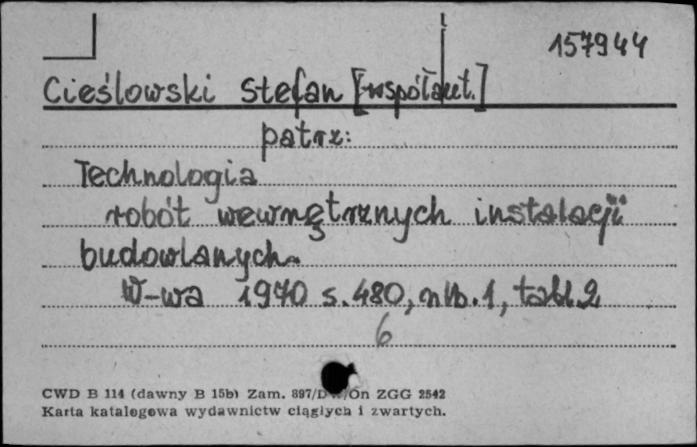 157944
Cieślowski Stefan [współaut.]
patrz:
Technologia
robót wewnętrznych instalacji
budowlanych.
W-wa 1970 s. 480, nlb. 1, tabl. 2
6
CWD B 114 (dawny B 15b) Zam. 897/DW/On ZGG 2542
Karta katalogowa wydawnictw ciągłych i zwartych.